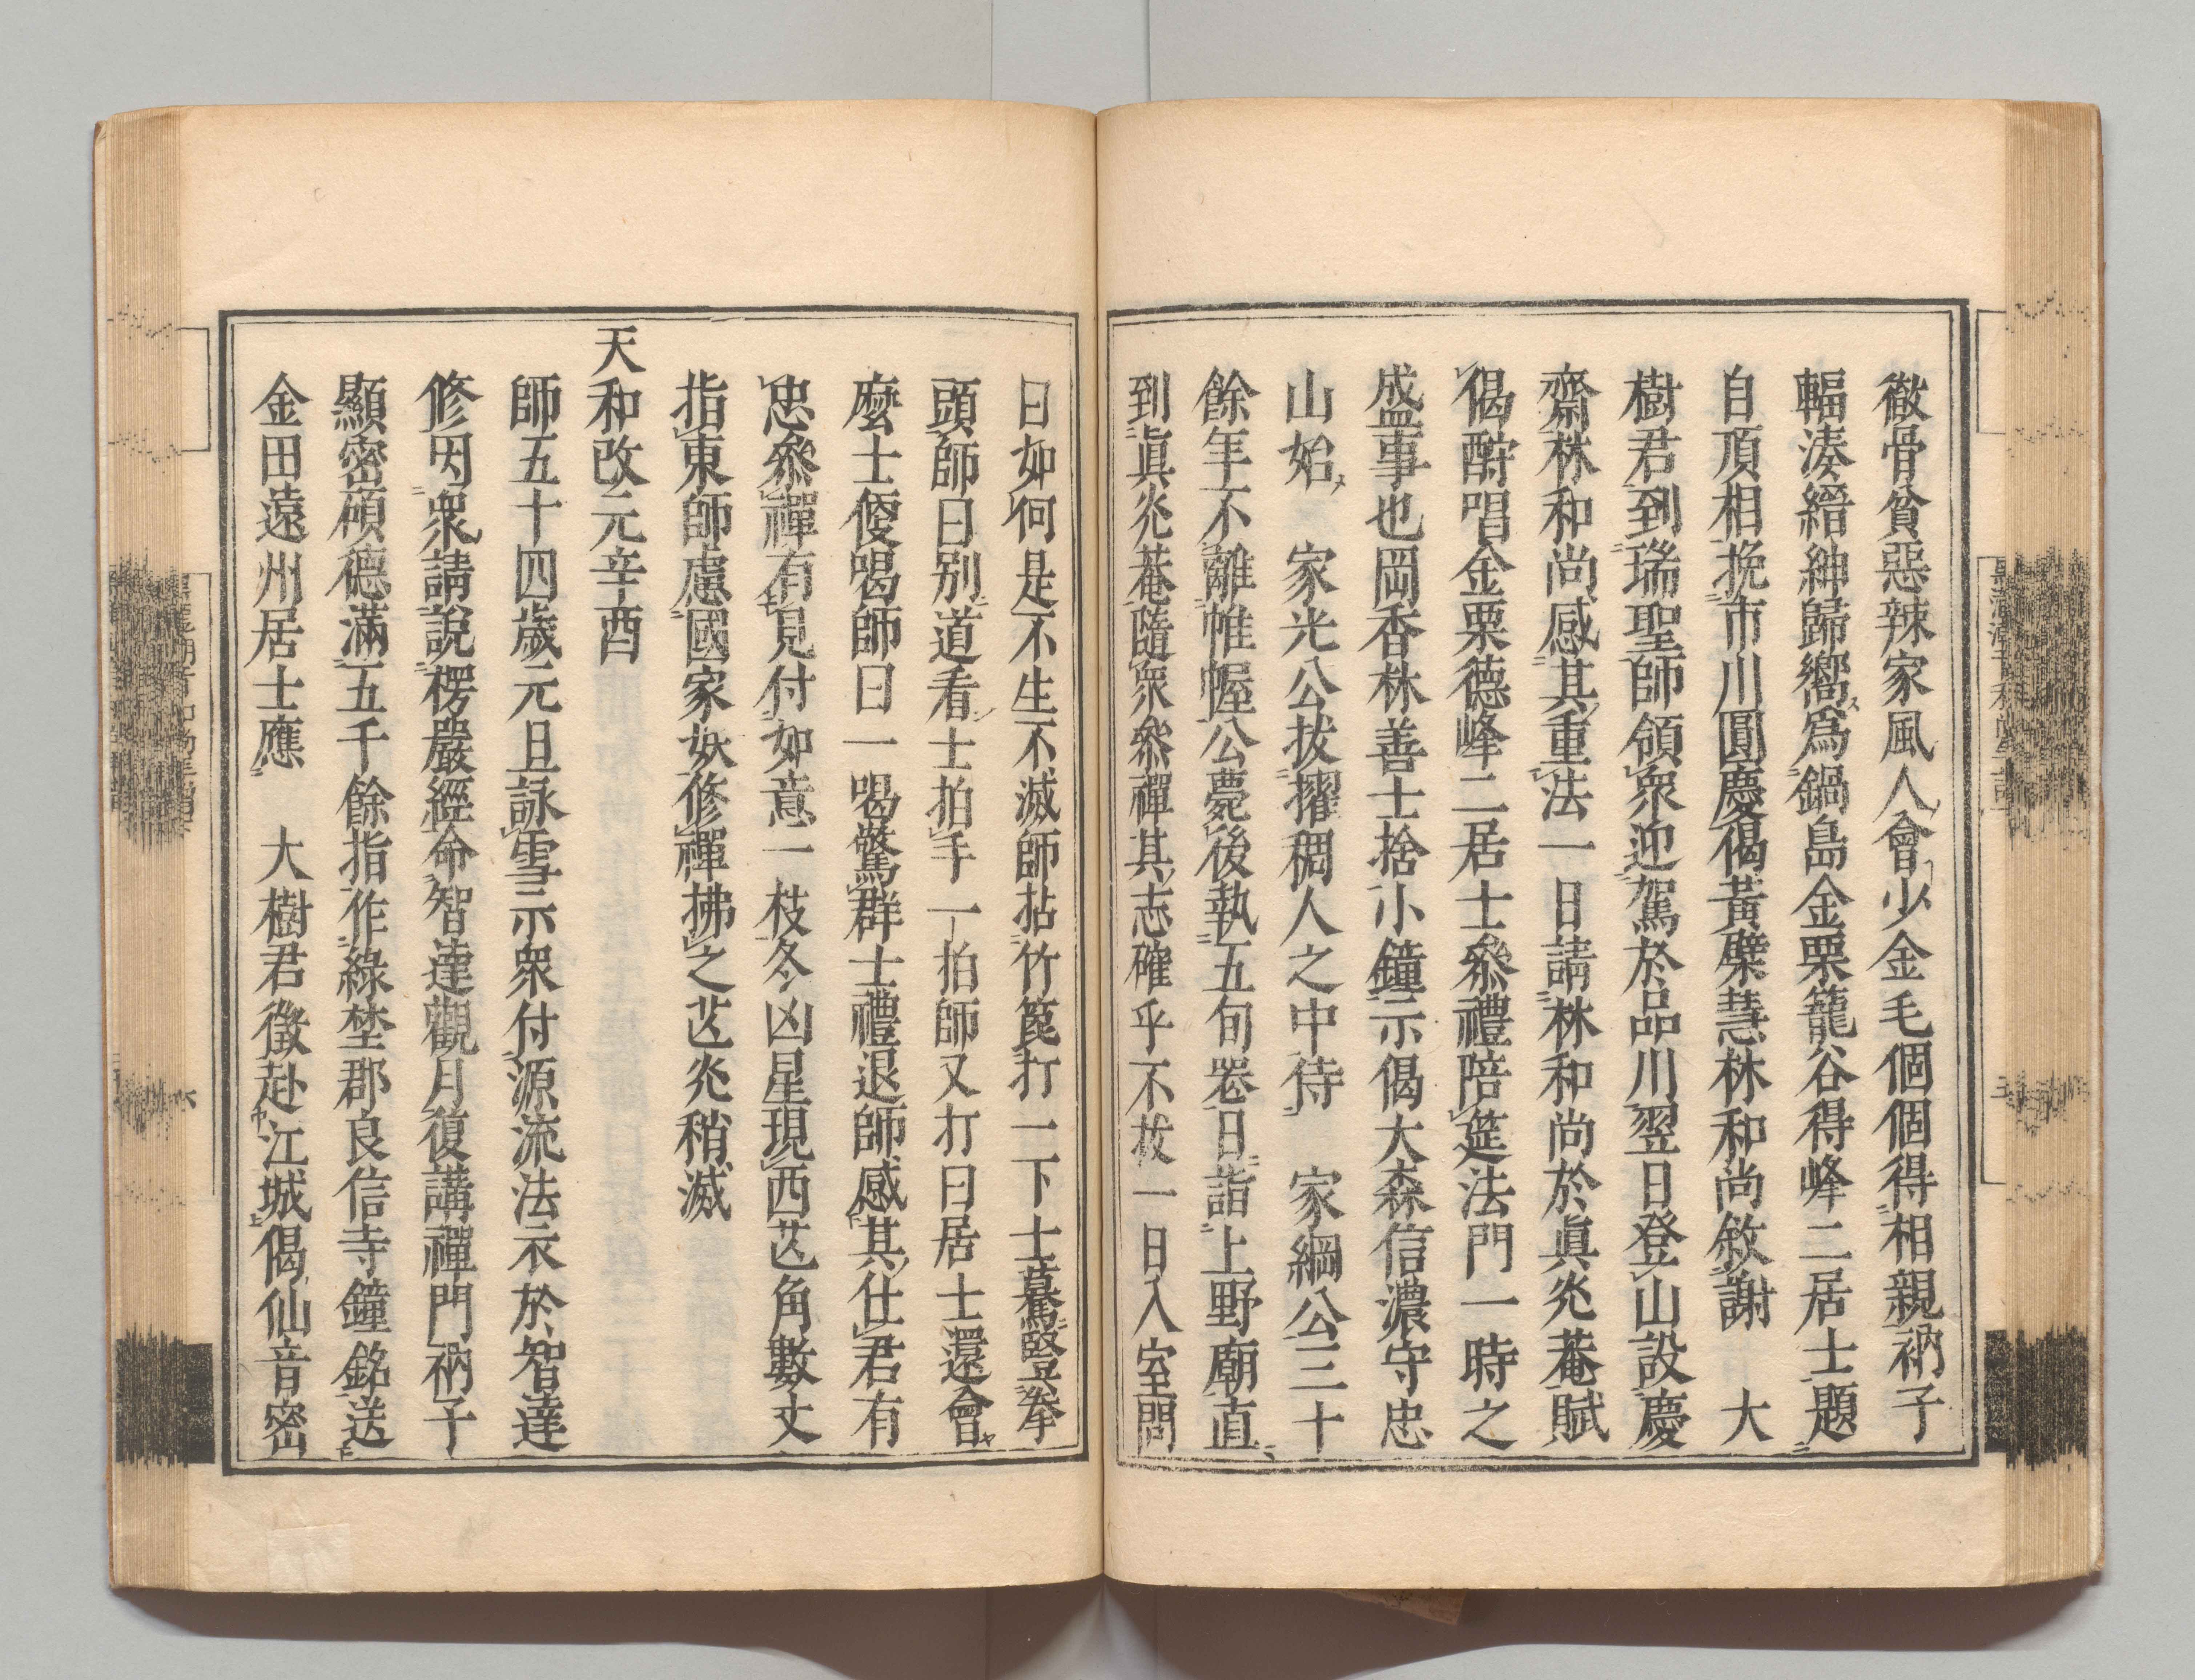 徹骨貧惡辣家風人會少金毛個個得相親衲子
輻湊縉紳歸嚮爲鍋島金栗籠谷得峰二居士題
自頂相挽市川圓慶偈黃檗慧林和尚敘謝　大
樹君到瑞聖師領衆迎駕於品川翌日登山設慶
齋林和尚感其重法一日請林和尚於眞兆菴賦
偈酧唱金栗德峰二居士叅禮陪筵法門一時之
盛事也岡香林善士捨小鐘示偈大森信濃守忠
山始　家光公拔擢稠人之中侍　家綱公三十
餘年不離帷幄公薨後執五旬畧日詣上野廟直
到眞兆菴隨衆叅禪其志確乎不拔一日入室問
曰如何是不生不滅師拈竹篦打一下士驀竪拳
頭師曰別道看士拍手一拍師又打曰居士還會
麼士便喝師曰一喝驚群士禮退師感其仕君有
忠叅禪有見付如意一枝冬凶星現西㐫角數丈
指東師慮國家妖修禪拂之㐫兆稍滅
天和改元辛酉
師五十四歲元旦詠雪示衆付源流法衣於智達
修因衆請說楞嚴經命智達觀月復講禪門衲子
顯密碩德滿五千餘指作綠埜郡良信寺鐘銘送
金田遠州居士應　大樹君徵赴江城偈仙音密